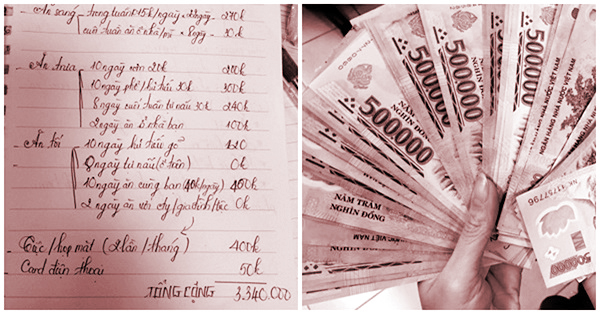 - Ăn sáng - trong tuần: 15k/ngày - 22ngày - 270k
cuối tuần ăn ở nhà/mì - 8ngày - 30k
- Ăn trưa 10 ngày cơm 20k 200k
10 ngày phở/hủ tiếu 30k 300k
8 ngày cuối tuần tự nấu 30k 240k
2 ngày ăn ở nhà bạn 100k
- Ăn tối 10 ngày hủ tiếu gõ
ngày tự nấu 0k
10 ngày ăn cùng bạn (40k/ngày) 400k
2 ngày ăn với cty/gia đình 0k
- họp mặt (2 lần/tháng) 400k
- Card điện thoại 50k
TỔNG CỘNG 3.340.000
500000
NGHÌN ĐỒNG
500000
NGHÌN ĐỒNG
500000
NGHÌN ĐỒNG
NGÂN HÀNG NHÀ NƯỚC VIỆT NAM
NĂM TRĂM
NGHÌN ĐỒNG
VIỆT NAM
NGHÌN ĐỒNG
500000